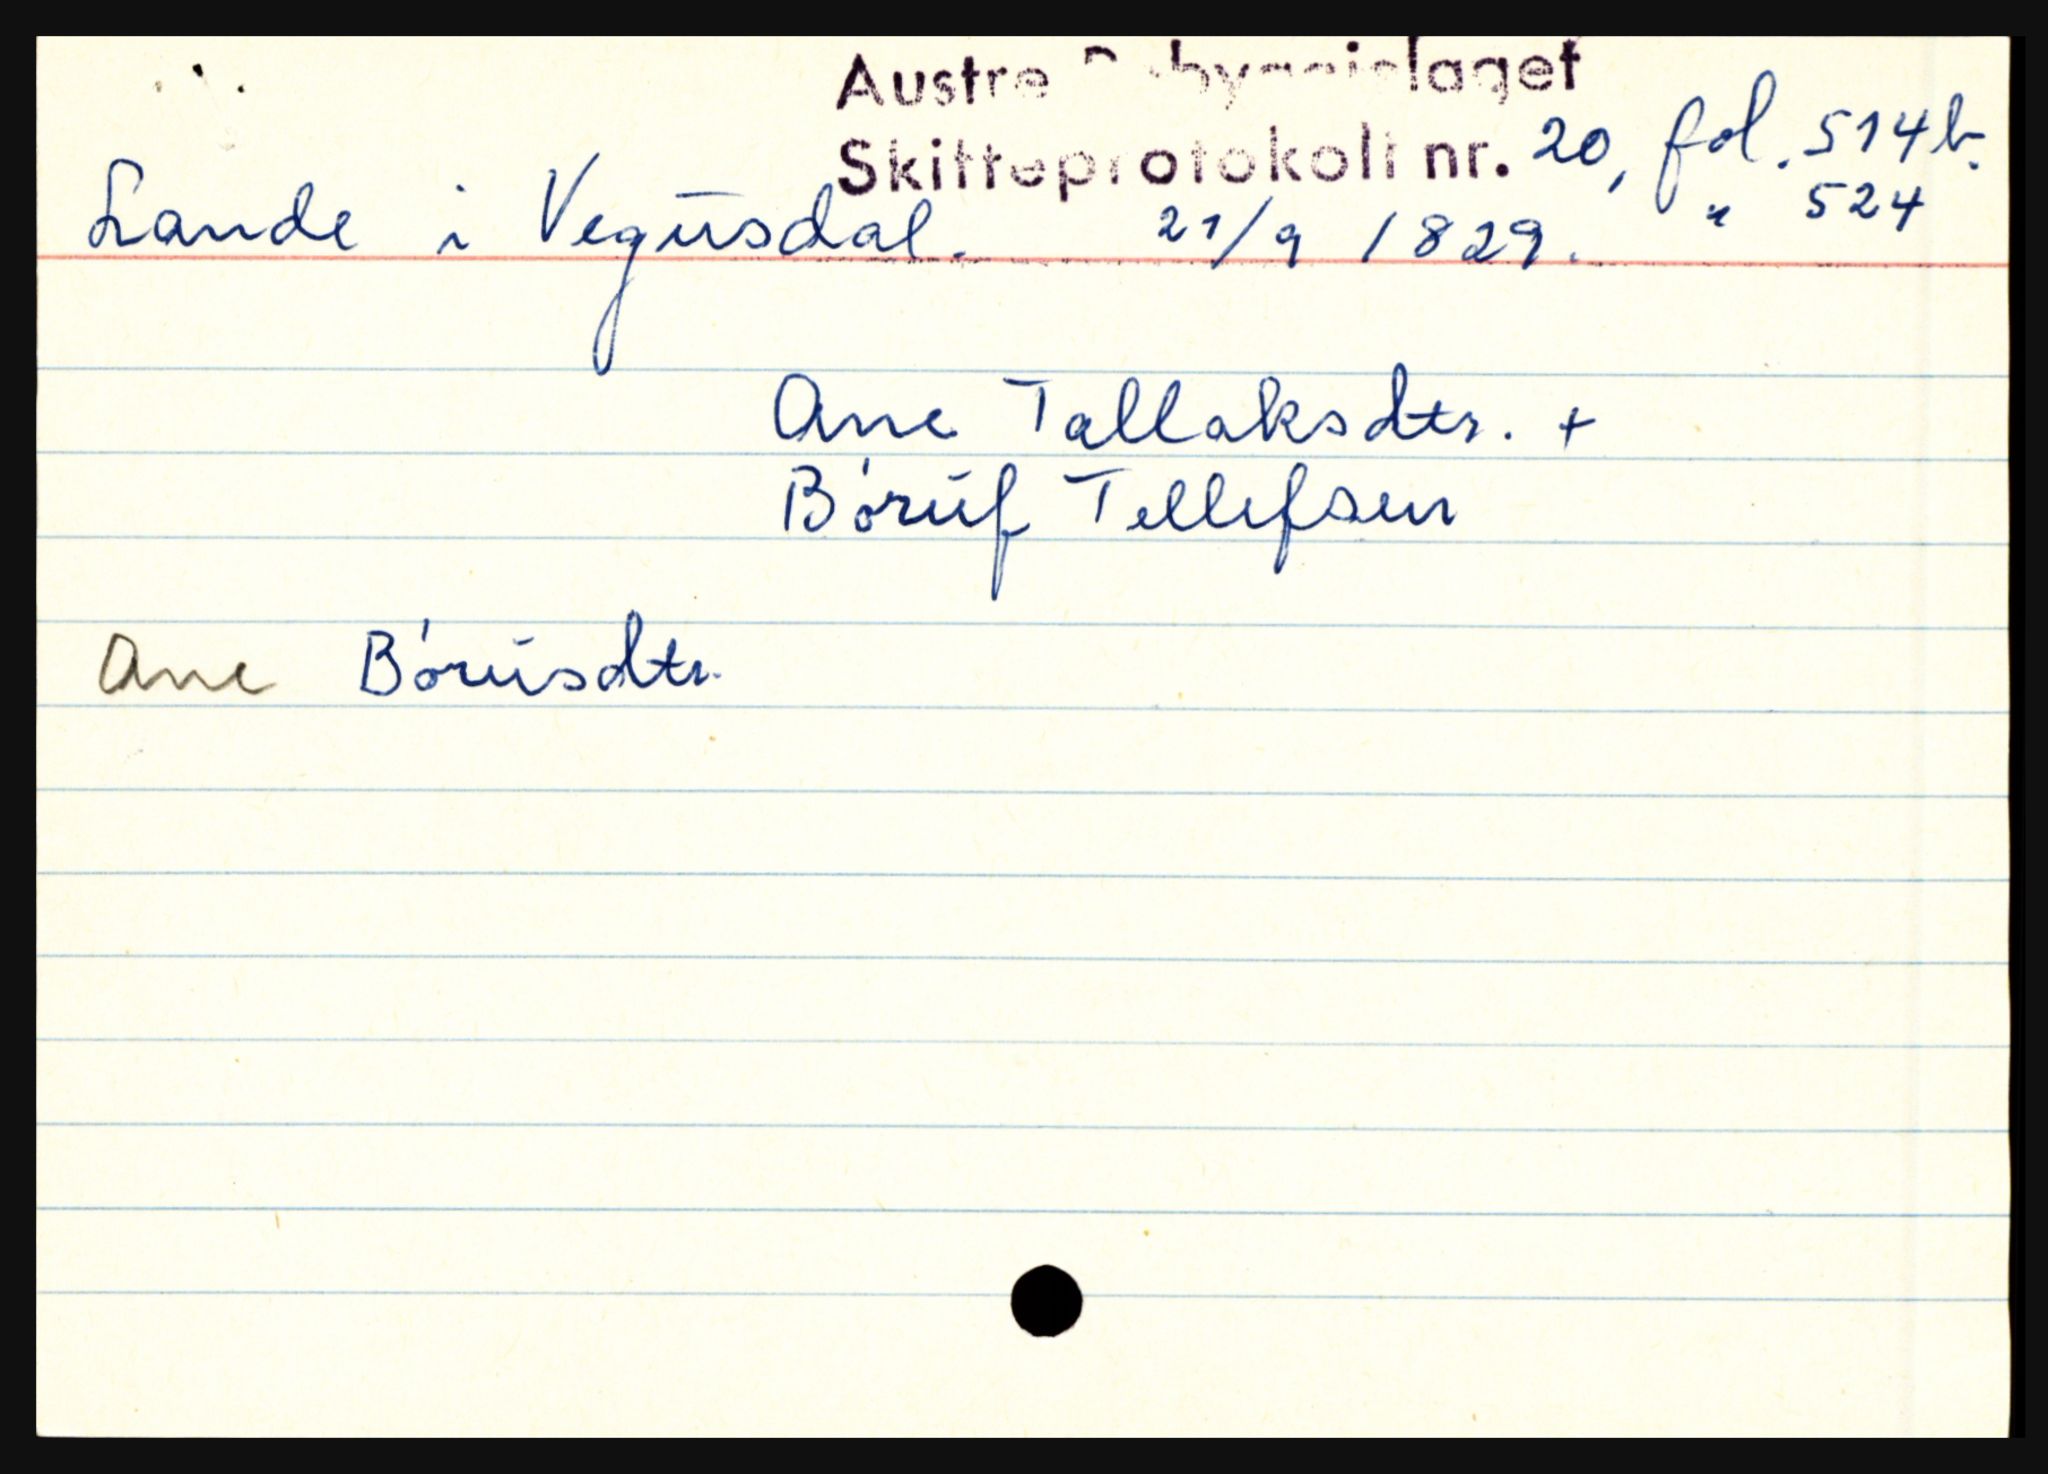 Austre Råbyggjelaget
Skifteprotokoll nr. 20, fol. 514b.
Lande i Vegusdal. 21/9 1829. " 524
Ane Tallaksdtr. +
Bórúf Tellefsen
Ane Bórúisdtr.